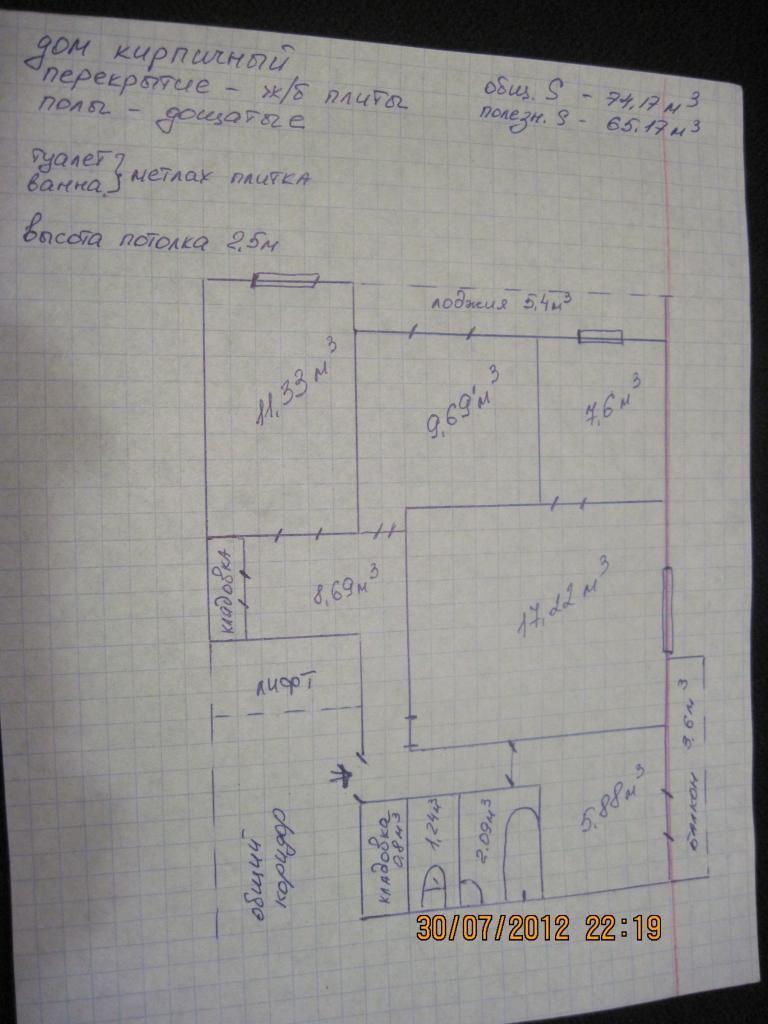 дом кирпичный
перекрытие - ж/б плиты
полы - дощатые
общ. S - 74,17 м³
полезн. S - 65,17 м³
туалет } метлах плитка
ванна
высота потолка 2,5м
лоджия 5,4м³
11,33 м³
9,69 м³
7,6 м³
кладовка
8,69м³
17,22 м³
лифт
балкон 3,6м³
общий
коридор
кладовка
0,8м³
1,24м³
2.09м³
5,88м³
30/07/2012 22:19